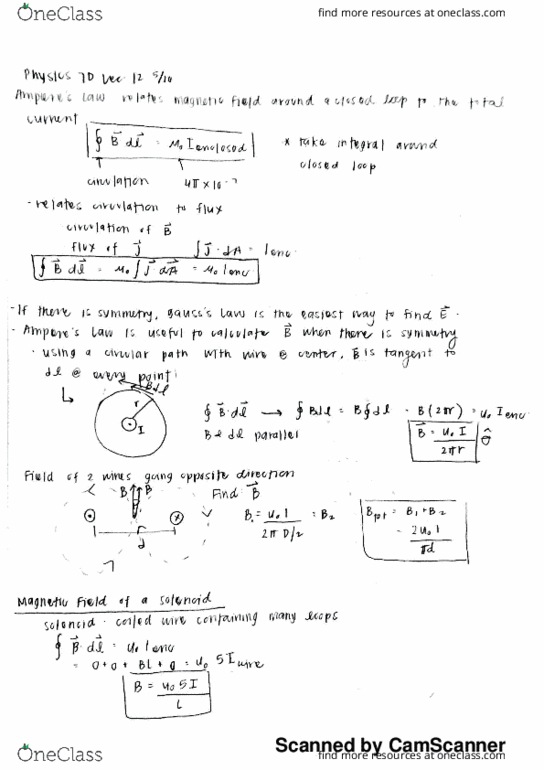 OneClass
find more resources at oneclass.com
Physics 7D Lec 12 5/10
Ampere's Law relates magnetic field around a closed loop to the total
current
∮ B⃗ dl⃗ = μ₀ I enclosed
* take integral around
closed loop
circulation 4π × 10⁻⁷
- relates circulation to flux
circulation of B⃗
flux of J⃗ ∫ J⃗ · dA = Ienc
∮ B⃗ dl⃗ = μ₀ ∫ J⃗ · dA⃗ = μ₀ Ienc
- If there is symmetry, gauss's law is the easiest way to find E⃗ .
- Ampere's Law is useful to calculate B⃗ when there is symmetry
· using a circular path with wire @ center, B⃗ is tangent to
dl @ every point
B dl
r
I
∮ B⃗ · dl⃗ → ∮ B dl = B ∮ dl = B (2πr) = μ₀ Ienc
B & dl parallel
B⃗ = μ₀ I / 2πr θ̂
Field of 2 wires going opposite direction
B B
Find B⃗
d
B₁ = μ₀ I / 2π D/2 = B₂
Bpt = B₁ + B₂
= 2μ₀ I / πd
Magnetic Field of a solenoid
solenoid - coiled wire containing many loops
∮ B⃗ · dl⃗ = μ₀ Ienc
= 0 + 0 + BL + 0 = μ₀ 5 I wire
B = μ₀ 5 I / L
Scanned by CamScanner
OneClass
find more resources at oneclass.com